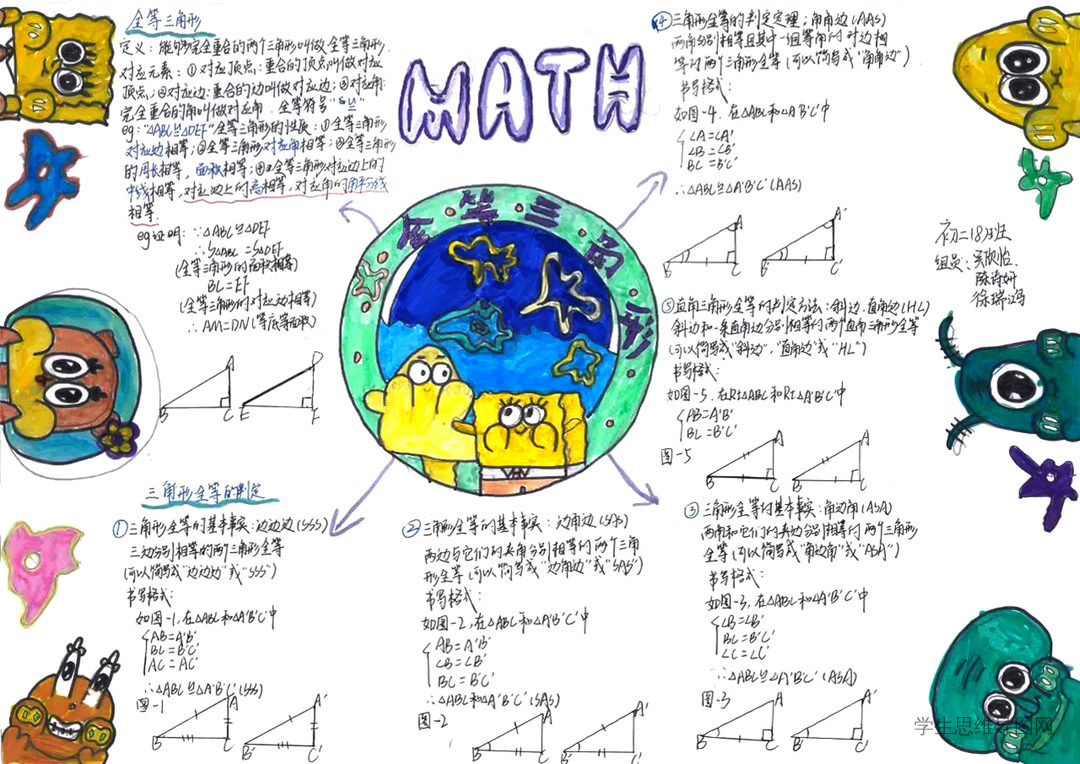 MATH
全等三角形
全等三角形
定义：能够完全重合的两个三角形叫做全等三角形.
对应元素：①对应顶点：重合的顶点叫做对应
顶点；②对应边：重合的边叫做对应边；③对应角:
完全重合的角叫做对应角. 全等符号"≌"
eg:"△ABC≌△DEF"全等三角形的性质：①全等三角形
对应边相等；②全等三角形对应角相等；③全等三角形
的周长相等，面积相等；④全等三角形对应边上的
中线相等，对应边上的高相等，对应角的角平分线
相等.
eg证明：∵△ABC≌△DEF
∴S△ABC=S△DEF
(全等三角形的面积相等)
BC=EF
(全等三角形的对应边相等)
∴AM=DN(等底等面积)
A
B
C
D
E
F
三角形全等的判定
①三角形全等的基本事实：边边边(SSS)
三边分别相等的两个三角形全等
(可以简写成"边边边"或"SSS")
书写格式：
如图-1,在△ABC和△A'B'C'中
AB=A'B'
BC=B'C'
AC=A'C'
∴△ABC≌△A'B'C'(SSS)
图-1
A
B
C
A'
B'
C'
②三角形全等的基本事实：边角边(SAS)
两边与它们的夹角分别相等的两个三角
形全等(可以简写成"边角边"或"SAS")
书写格式：
如图-2,在△ABC和△A'B'C'中
AB=A'B'
∠B=∠B'
BC=B'C'
∴△ABC和△A'B'C'(SAS)
图-2
A
B
C
A'
B'
C'
③三角形全等的基本事实：角边角(ASA)
两角和它们的夹边分别相等的两个三角形
全等(可以简写成"角边角"或"ASA")
书写格式：
如图-3,在△ABC和△A'B'C'中
∠B=∠B'
BC=B'C'
∠C=∠C'
∴△ABC≌△A'B'C'(ASA)
图-3
A
B
C
A'
B'
C'
④三角形全等的判定定理：角角边(AAS)
两角分别相等且其中一组等角的对边相
等的两个三角形全等(可以简写成"角角边")
书写格式：
如图-4,在△ABC和△A'B'C'中
∠A=∠A'
∠B=∠B'
BC=B'C'
∴△ABC≌△A'B'C'(AAS)
A
B
C
A'
B'
C'
⑤直角三角形全等的判定方法：斜边,直角边(HL)
斜边和一条直角边分别相等的两个直角三角形全等
(可以简写成"斜边","直角边"或"HL")
书写格式：
如图-5,在Rt△ABC和Rt△A'B'C'中
AB=A'B'
BC=B'C'
图-5
A
B
C
A
B
C
初二18班
组员：
学生思维好图网